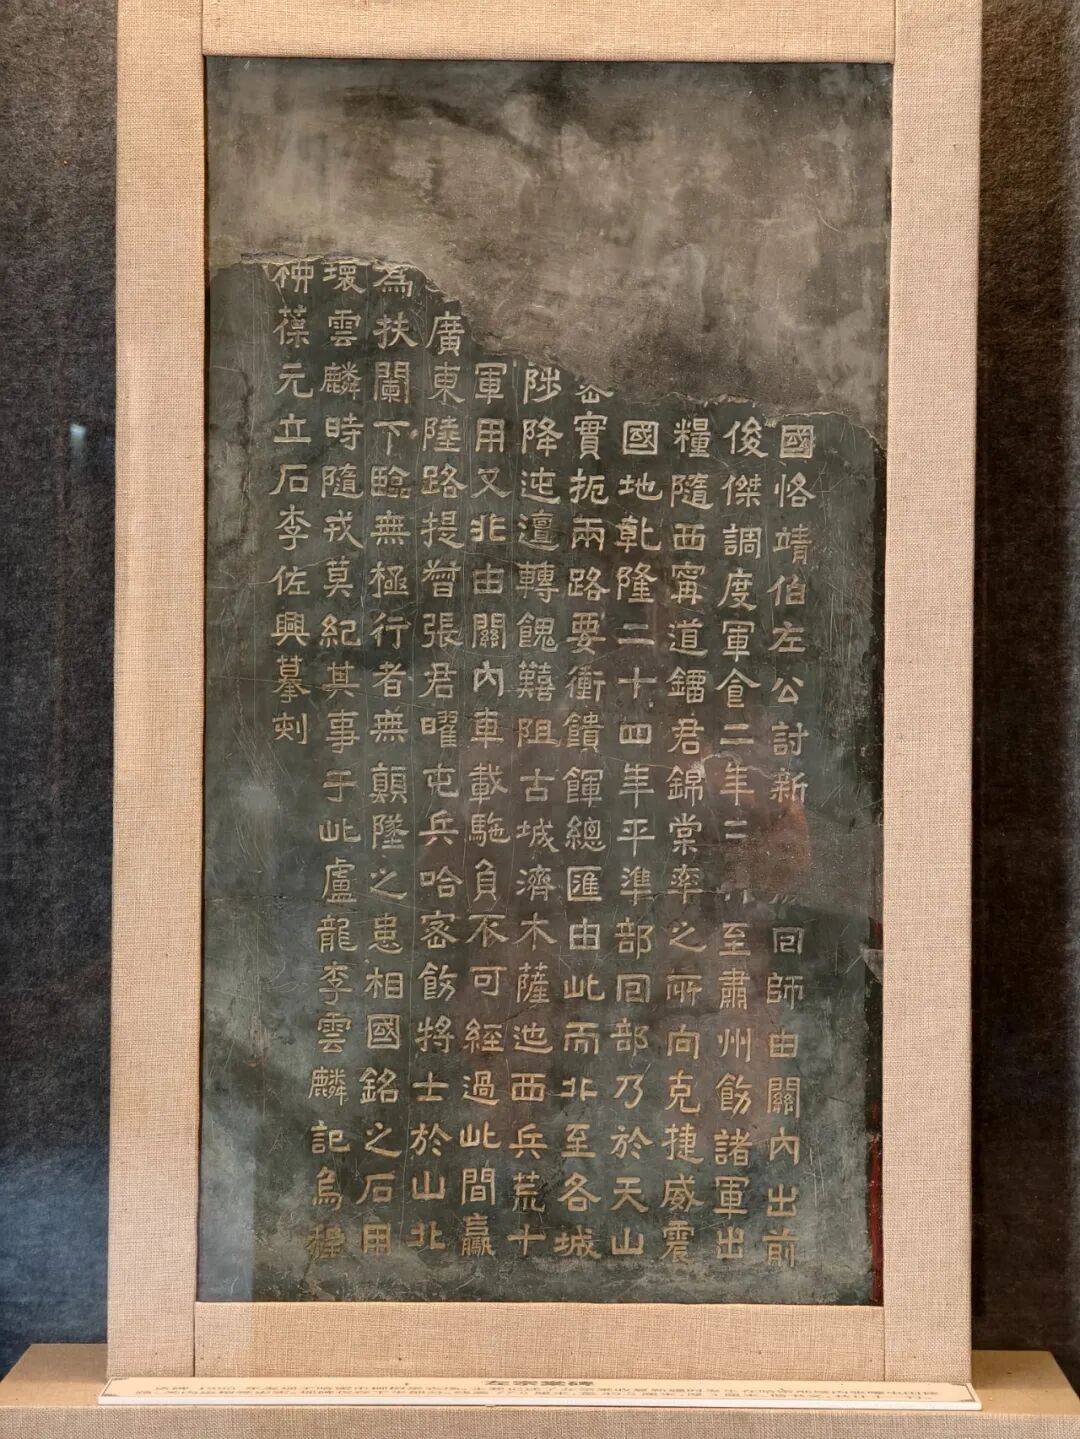 國恪靖伯左公討新回師由關內出前
俊傑調度軍食二年二月至肅州飭諸軍出
糧隨西寧道鐂君錦棠率之所向克捷威震
國地乾隆二十四年平準部回部乃於天山
密實扼兩路要衝饋餫總匯由此而北至各城
陟降迍邅轉餽艱阻古城濟木薩迤西兵荒十
軍用又北由關內車載駞負不可經過此間贏
廣東陸路提督張君曜屯兵哈密飭將士於山北
為扶闌下臨無極行者無顛墜之患相國銘之石用
環雲麟時隨戎莫紀其事于此盧龍李雲麟記烏程
葆元立石李佐興摹刻
左宗棠碑